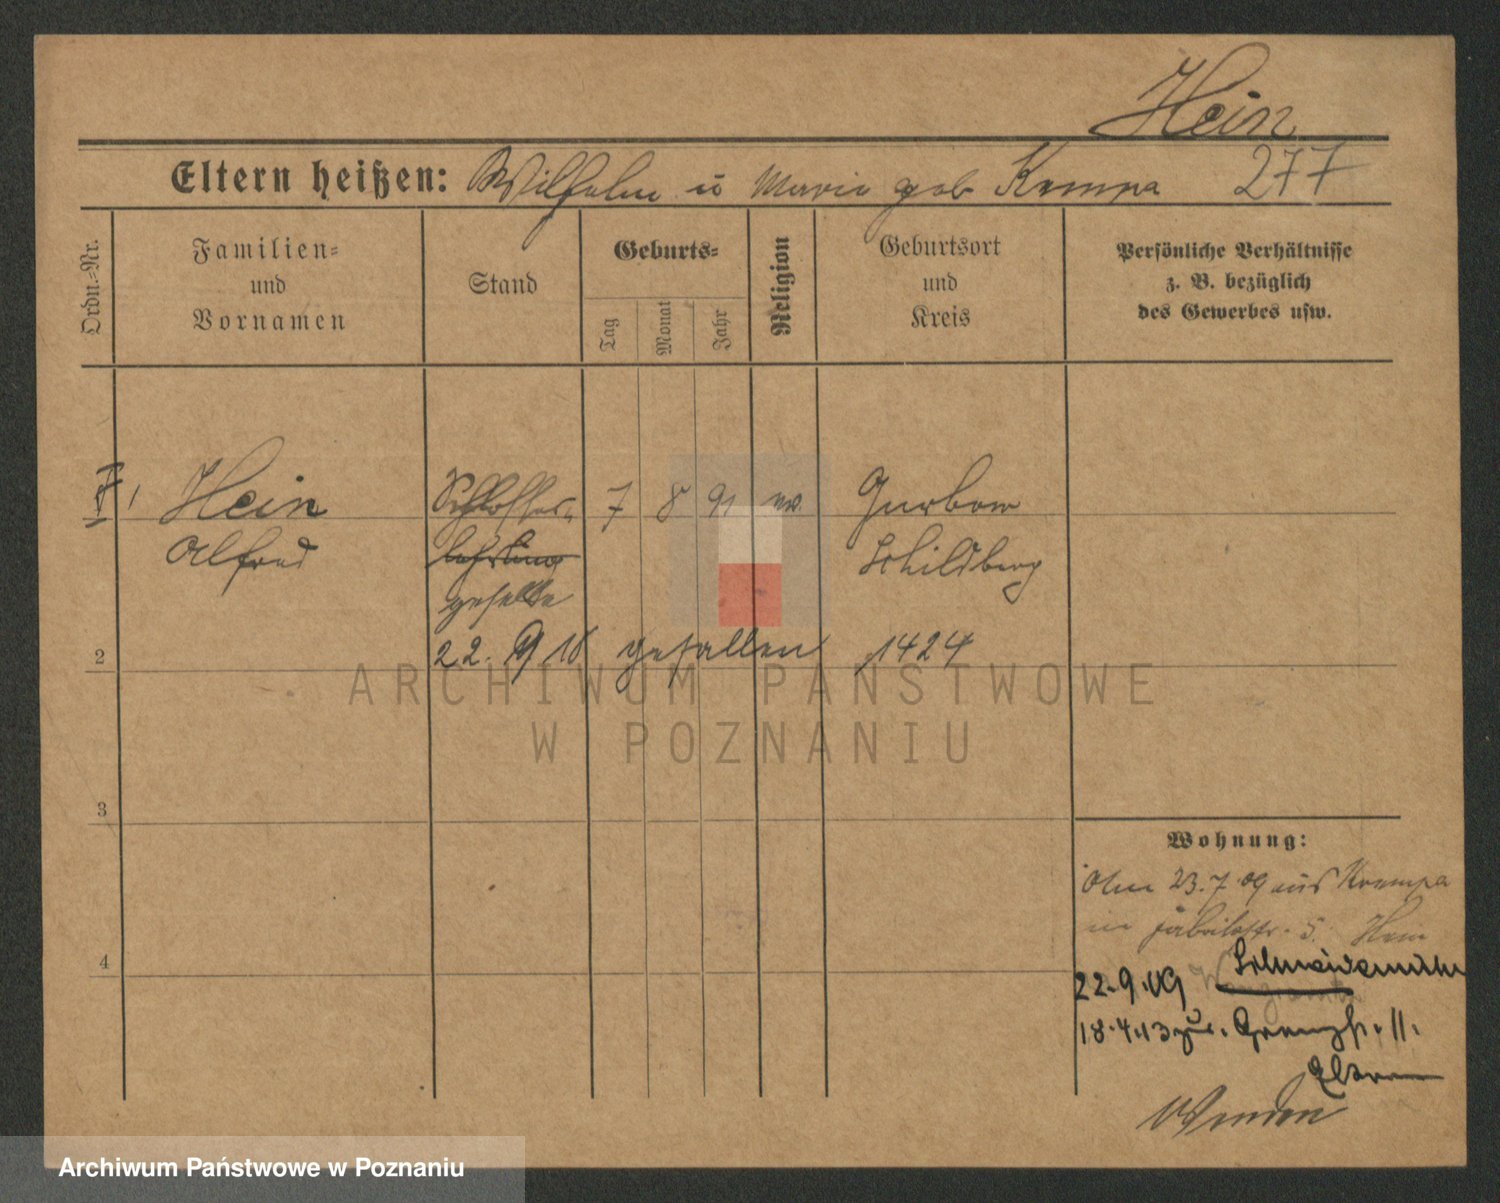 Hein
Eltern heißen: Wilhelm u Marie geb Kempa 277
Ordn.-Nr.
Familien- und Vornamen
Stand
Geburts-
Tag
Monat
Jahr
Religion
Geburtsort und Kreis
Persönliche Verhältnisse
z. B. bezüglich
des Gewerbes usw.
1 Hein Schlosser- 7 8 91 ev. Gurbow
Alfred lehrling Schildberg
geselle
2 22. 9 18 gefallen 1424
3
4
Wohnung:
23.7.09 aus Krempa
in 5. Hein
22.9.09 Schneidemühl
18.4.13 zur. 11.
Eltern
ARCHIWUM PAŃSTWOWE
W POZNANIU
Archiwum Państwowe w Poznaniu